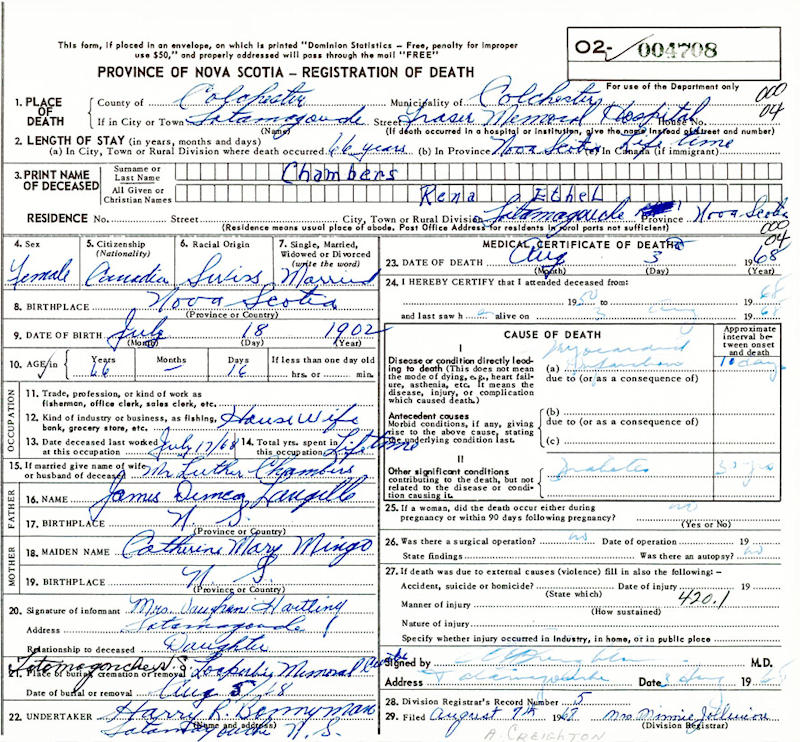 This form, if placed in an envelope, on which is printed "Dominion Statistics – Free, penalty for improper
use $50," and properly addressed will pass through the mail "FREE"
02- 004708
PROVINCE OF NOVA SCOTIA – REGISTRATION OF DEATH
For use of the Department only
1. PLACE OF DEATH
County of Colchester Municipality of Colchester 000
If in City or Town Tatamagouche Street Fraser Memorial Hospital House No. 04
(Name) (If death occurred in a hospital or institution, give the name instead of street and number)
2. LENGTH OF STAY (in years, months and days)
(a) In City, Town or Rural Division where death occurred 66 years (b) In Province Nova Scotia (c) In Canada (if immigrant) Life time
3. PRINT NAME OF DECEASED
Surname or Last Name Chambers
All Given or Christian Names Rena Ethel
RESIDENCE No. Street City, Town or Rural Division Tatamagouche Province Nova Scotia
(Residence means usual place of abode. Post Office Address for residents in rural parts not sufficient) 000
04
4. Sex 5. Citizenship (Nationality) 6. Racial Origin 7. Single, Married, Widowed or Divorced (write the word)
Female Canadia Swiss Married
8. BIRTHPLACE Nova Scotia
(Province or Country)
9. DATE OF BIRTH July 18 1902
(Month) (Day) (Year)
10. AGE in Years Months Days If less than one day old
66 – 16 hrs. or min.
OCCUPATION
11. Trade, profession, or kind of work as
fisherman, office clerk, sales clerk, etc.
12. Kind of industry or business, as fishing,
bank, grocery store, etc. House Wife
13. Date deceased last worked at this occupation July 17/68 14. Total yrs. spent in this occupation Lifetime
15. If married give name of wife or husband of deceased Mr Luther Chambers
FATHER
16. NAME James Langille
17. BIRTHPLACE N. S.
(Province or Country)
MOTHER
18. MAIDEN NAME Catherine Mary Mingo
19. BIRTHPLACE N. S.
(Province or Country)
20. Signature of informant Mrs. Vaughan Hartling
Address Tatamagouche
Relationship to deceased Daughter
Tatamagouche N.S. Memorial
21. Place of burial, cremation or removal
Date of burial or removal Aug 5/68
22. UNDERTAKER Harry R. Bennyman
(Name and address)
Tatamagouche N. S.
MEDICAL CERTIFICATE OF DEATH
23. DATE OF DEATH Aug 3 1968
(Month) (Day) (Year)
24. I HEREBY CERTIFY that I attended deceased from:
1950 1968
and last saw h alive on 3 Aug 1968
CAUSE OF DEATH
Approximate interval between onset and death
I
Disease or condition directly leading to death (This does not mean the mode of dying, e.g., heart failure, asthenia, etc. It means the disease, injury, or complication which caused death.)
(a) myocardial infarction 16 days
due to (or as a consequence of)
Antecedent causes
Morbid conditions, if any, giving rise to the above cause, stating the underlying condition last.
(b)
due to (or as a consequence of)
(c)
II
Other significant conditions
contributing to the death, but not related to the disease or condition causing it.
Diabetes
25. If a woman, did the death occur either during
pregnancy or within 90 days following pregnancy? no
(Yes or No)
26. Was there a surgical operation? no Date of operation 19
State findings Was there an autopsy? no
27. If death was due to external causes (violence) fill in also the following:–
Accident, suicide or homicide? Date of injury 19
(State which) 420.1
Manner of injury
(How sustained)
Nature of injury
Specify whether injury occurred in industry, in home, or in public place
Signed by M.D.
Address Tatamagouche Date 3 Aug 1968
28. Division Registrar's Record Number 5
29. Filed August 9th 1967 Mrs. Minnie
(Division Registrar)
A. CREIGHTON